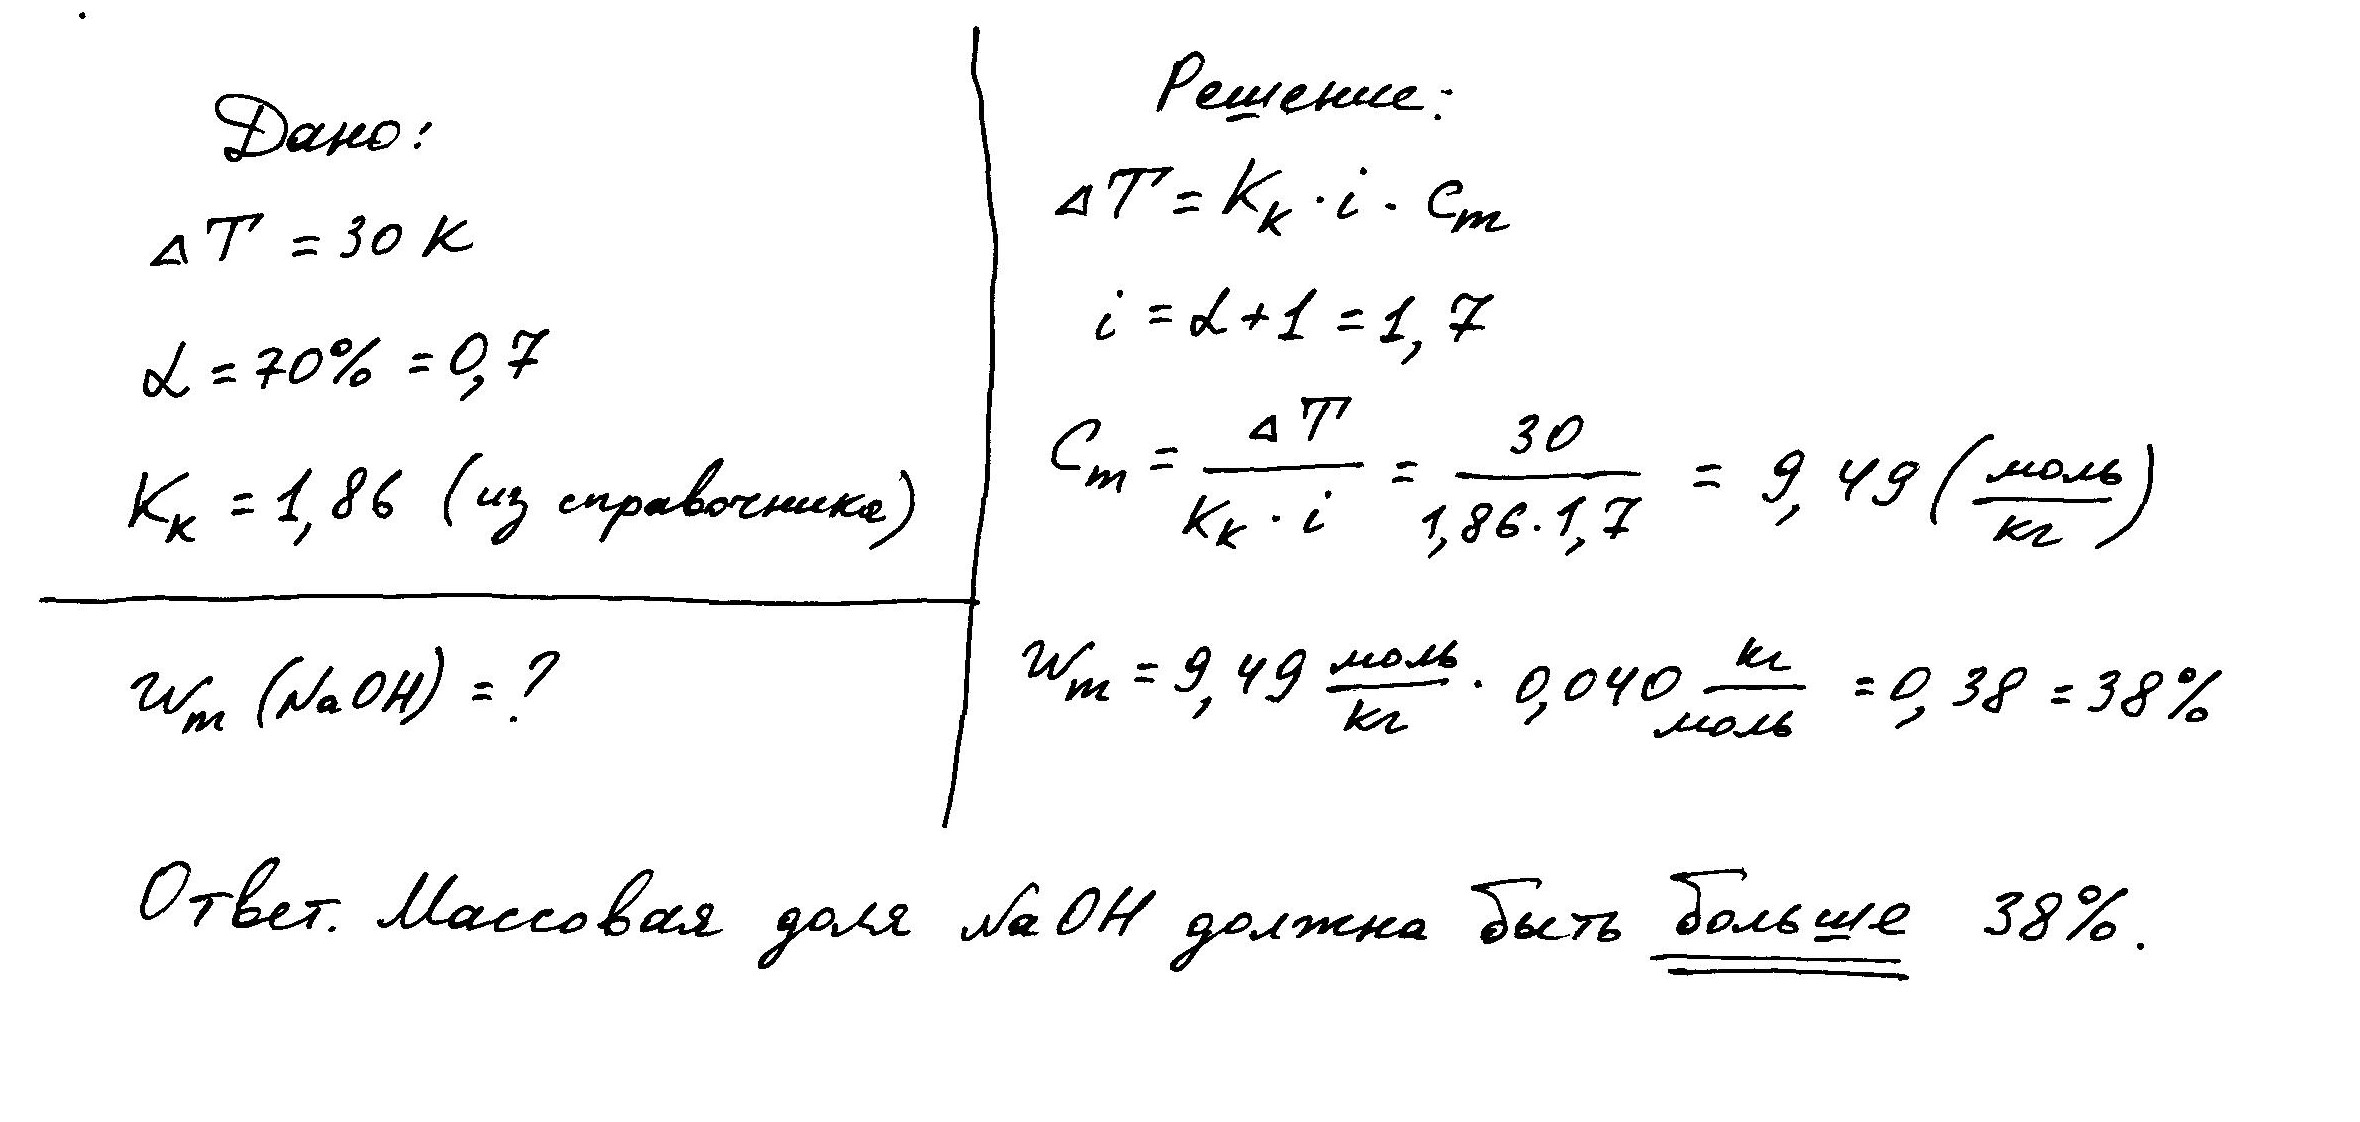 Дано:
ΔT = 30 К
α = 70% = 0,7
Kк = 1,86 (из справочника)
Wm (NaOH) = ?
Решение:
ΔT = Kк · i · Cm
i = α + 1 = 1,7
Cm = ΔT / (Kк · i) = 30 / (1,86 · 1,7) = 9,49 (моль/кг)
Wm = 9,49 моль/кг · 0,040 кг/моль = 0,38 = 38%
Ответ. Массовая доля NaOH должна быть больше 38%.